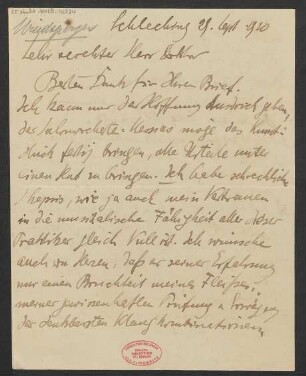 Schleching 29. Sept 1930
Sehr verehrter Herr Doktor
Besten Dank für Ihren Brief.
Ich kann nur der Hoffnung Ausdruck geben,
der Salonorchester-Messias möge das Kunst-
stück fertig bringen, alle Urteile unter
einen Hut zu bringen. Ich habe schreckliche
Skepsis, wie ja auch mein Vertrauen
in die musikalische Fähigkeit aller
Praktiker gleich Null ist. Ich wünsche
auch von Herzen, daß er seiner Erfahrung
nur einen Bruchteil meines Fleißes,
meiner gewissenhaften Prüfung u. Erwägung
der denkbarsten Klangkombinationen,